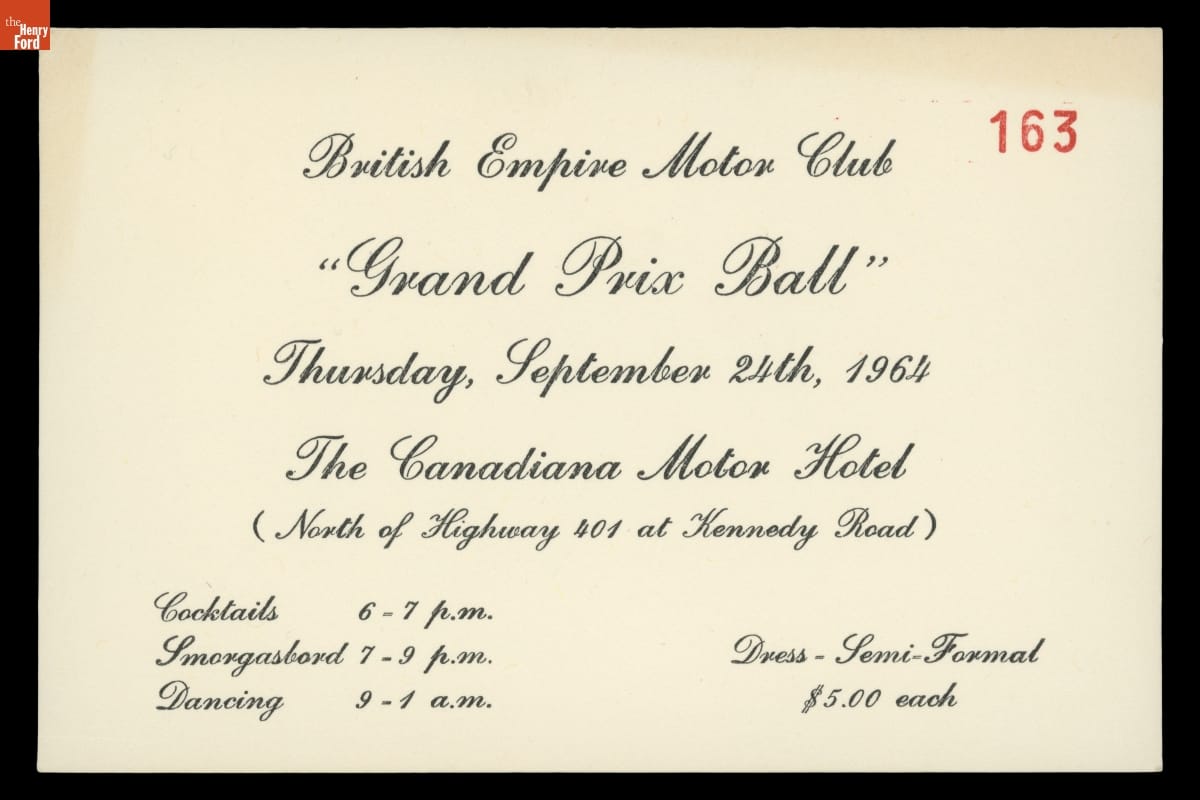 the
Henry
Ford
163
British Empire Motor Club
“Grand Prix Ball”
Thursday, September 24th, 1964
The Canadiana Motor Hotel
(North of Highway 401 at Kennedy Road)
Cocktails 6 - 7 p.m.
Smorgasbord 7 - 9 p.m.
Dancing 9 - 1 a.m.
Dress - Semi-Formal
$5.00 each